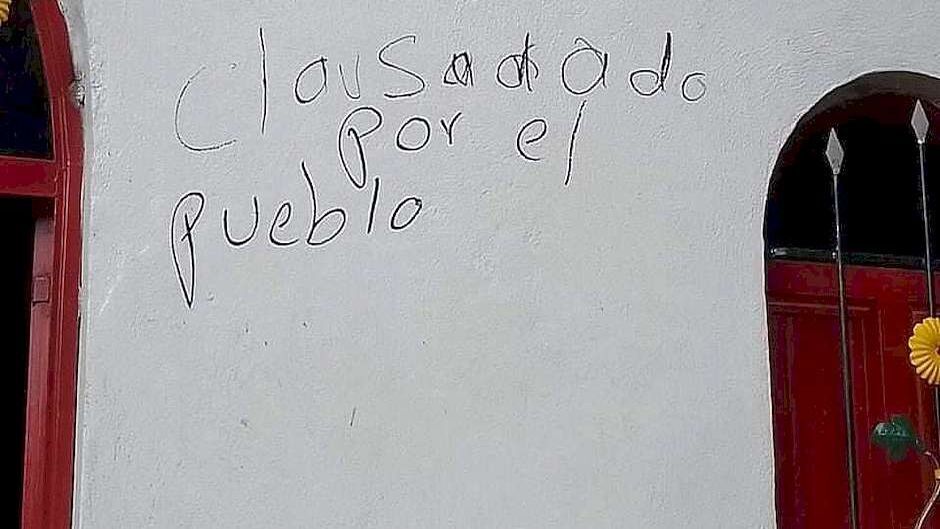 ClauSadado
por el
pueblo